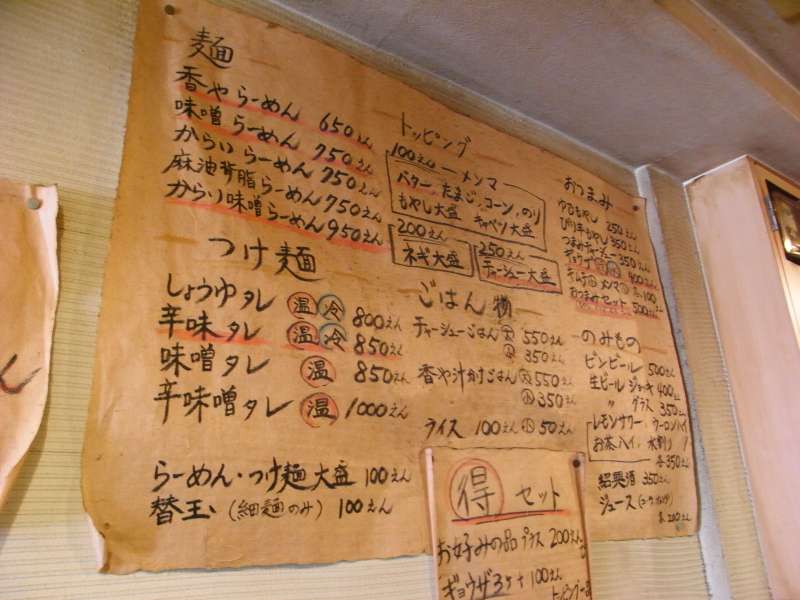 麺
香やらーめん 650えん
味噌らーめん 750えん
からいらーめん 750えん
麻油背脂らーめん 750えん
からい味噌らーめん 950えん
つけ麺
しょうゆタレ 温 冷 800えん
辛味タレ 温 冷 850えん
味噌タレ 温 850えん
辛味噌タレ 温 1000えん
らーめん・つけ麺大盛 100えん
替玉(細麺のみ) 100えん
トッピング
100えん メンマ
バター、たまご、コーン、のり
もやし大盛 キャベツ大盛
200えん
ネギ大盛
250えん
チャーシュー大盛
ごはん物
チャーシューごはん 大 550えん
小 350えん
香や汁かけごはん 大 550えん
小 350えん
ライス 100えん 小 50えん
おつまみ
ゆでもやし 250えん
ぴり辛もやし 350えん
つまみチャーシュー 350えん
ギョウザ 400えん
キムチ メンマ 各100
おつまみセット 500えん
のみもの
ビンビール 500えん
生ビール ジョッキ 400えん
〃 グラス 350えん
レモンサワー、ウーロンハイ
お茶ハイ、水割り
各350えん
紹興酒 350えん
ジュース
各200えん
得 セット
お好みの品プラス 200えん
ギョウザ3ケ+100えん
トッピング一品
ん